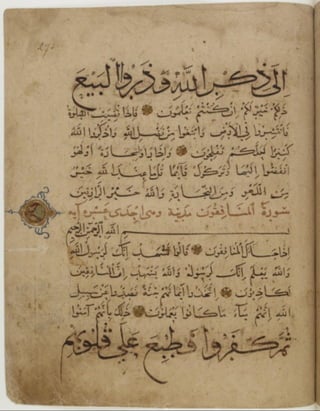 الى ذكر الله وذروا البيع
ذلكم خير لكم ان كنتم تعلمون فاذا قضيت الصلوة
فانتشروا في الارض وابتغوا من فضل الله واذكروا الله
كثيرا لعلكم تفلحون واذا راوا تجارة او لهوا
انفضوا اليها وتركوك قائما قل ما عند الله خير
من اللهو ومن التجارة والله خير الرازقين
سورة المنافقون مدنية وهي احدى عشرة اية
بسم الله الرحمن الرحيم
اذا جاءك المنافقون قالوا نشهد انك لرسول الله
والله يعلم انك لرسوله والله يشهد ان المنافقين
لكاذبون اتخذوا ايمانهم جنة فصدوا عن سبيل
الله انهم ساء ما كانوا يعملون ذلك بانهم آمنوا
ثم كفروا فطبع على قلوبهم